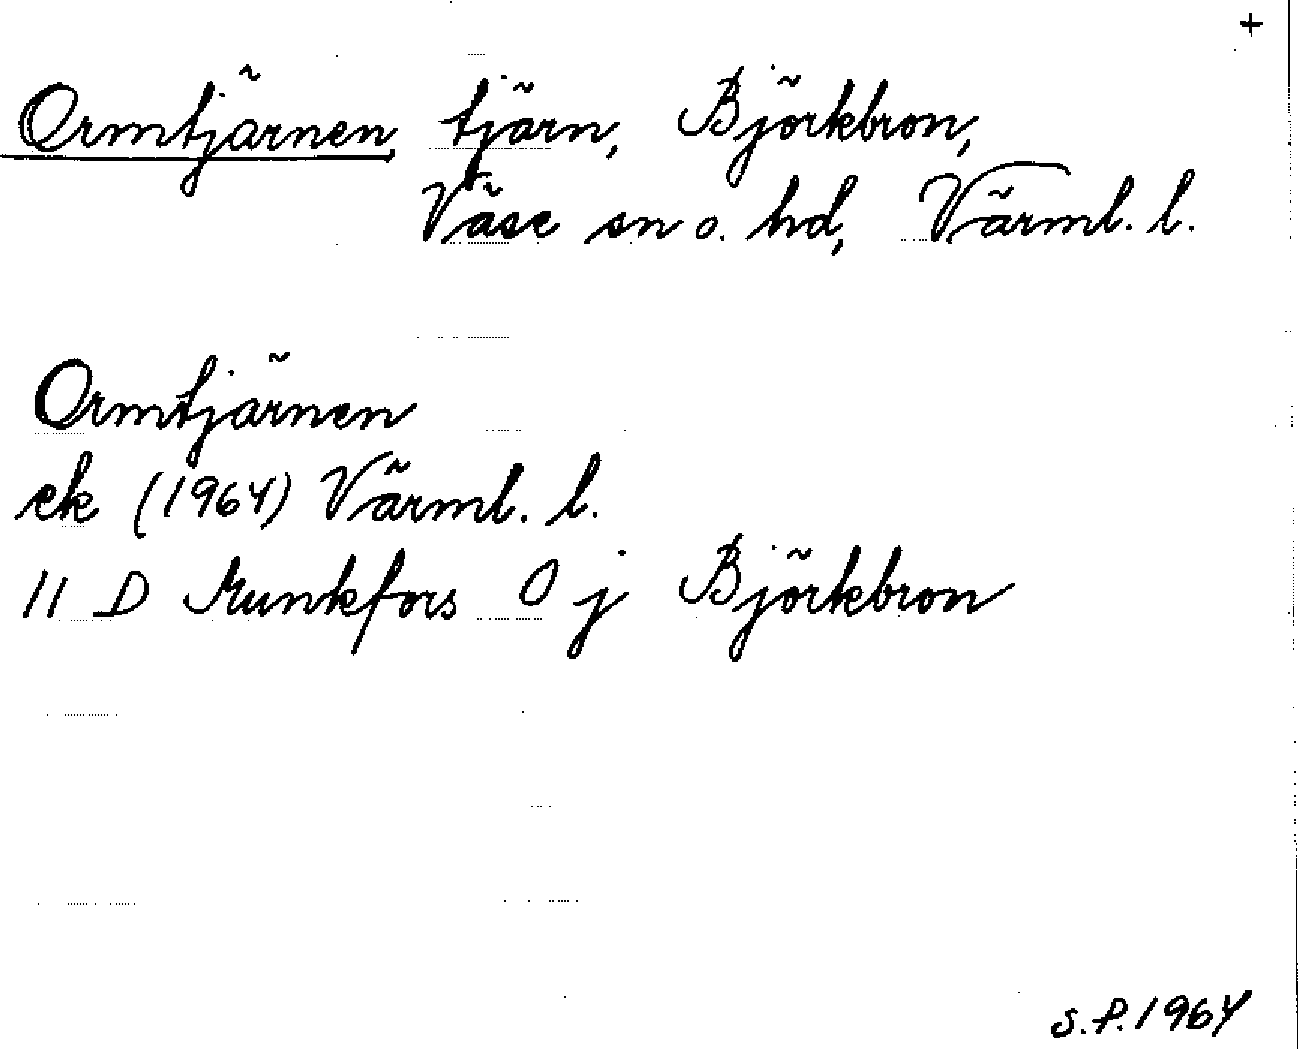 +
Ormtjärnen, tjärn, Björkbron,
Väse sn o. hd, Värml. l.
Ormtjärnen
ek (1964) Värml. l.
11 D Munkfors 0 j Björkbron
S.P. 1964